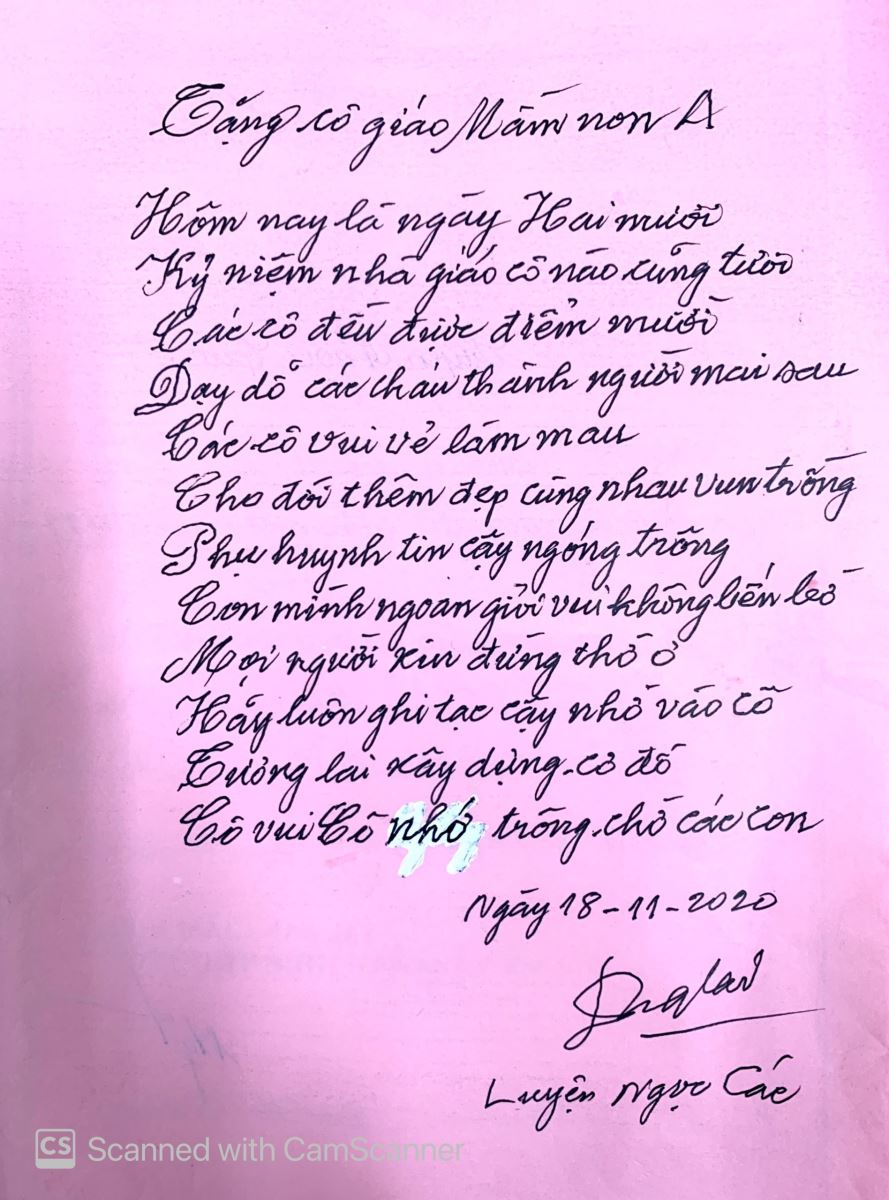 Tặng cô giáo Mầm non A
Hôm nay là ngày Hai mươi
Kỷ niệm nhà giáo cô nào cũng tươi
Các cô đều được điểm mười
Dạy dỗ các cháu thành người mai sau
Các cô vui vẻ làm mau
Cho đời thêm đẹp cùng nhau vun trồng
Phụ huynh tin cậy ngóng trông
Con mình ngoan giỏi vui không bến bờ
Mọi người xin đừng thờ ơ
Hãy luôn ghi tạc cậy nhờ vào cô
Tương lai xây dựng cơ đồ
Cô vui Cô nhớ trông chờ các con
Ngày 18-11-2020
Luyện Ngọc Các
CS Scanned with CamScanner